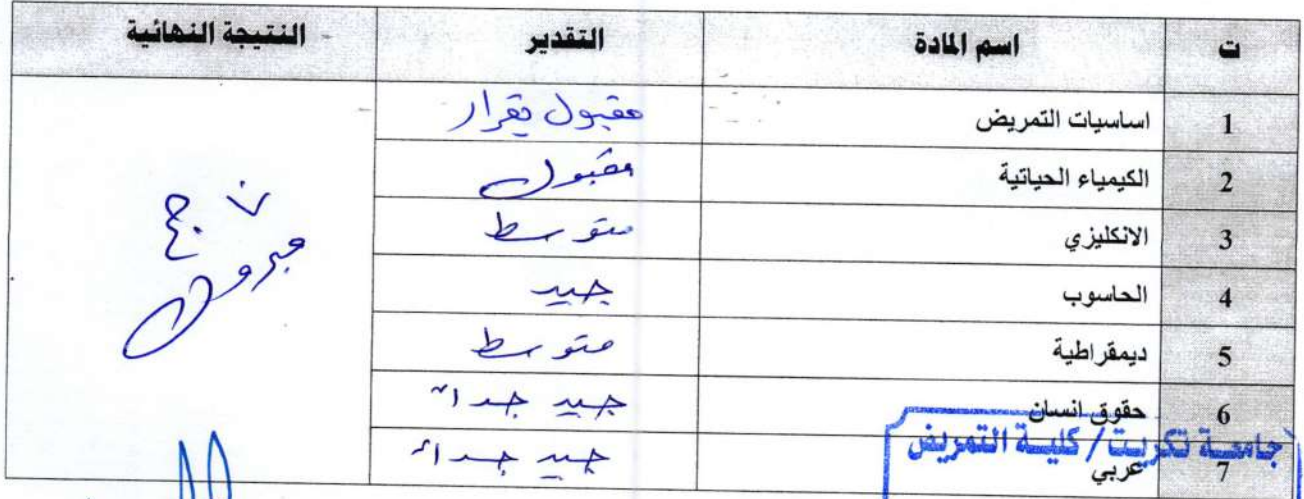 ت اسم المادة التقدير النتيجة النهائية
1 اساسيات التمريض مقبول بقرار
2 الكيمياء الحياتية مقبول
3 الانكليزي متوسط
4 الحاسوب جيد
5 ديمقراطية متوسط
6 حقوق انسان جيد جداً
7 عربي جيد جداً
ناجح
مبروك
جامعة تكريت / كلية التمريض